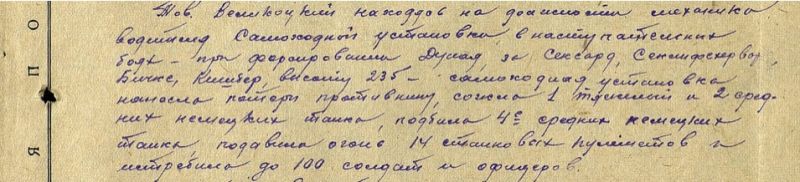 Тов. Великоцкий находясь на должности механика
водителя Самоходной установки в наступательных
боях – при форсировании Дуная, за Сексард,
Бичке, высоту 235 – самоходная установка
нанесла потери противнику, сожгла 1 тяжелый и 2 сред-
них немецких танка, подбила 4 средних немецких
танка, подавила огонь 14 станковых пулеметов и
истребила до 100 солдат и офицеров.
О
П
Я